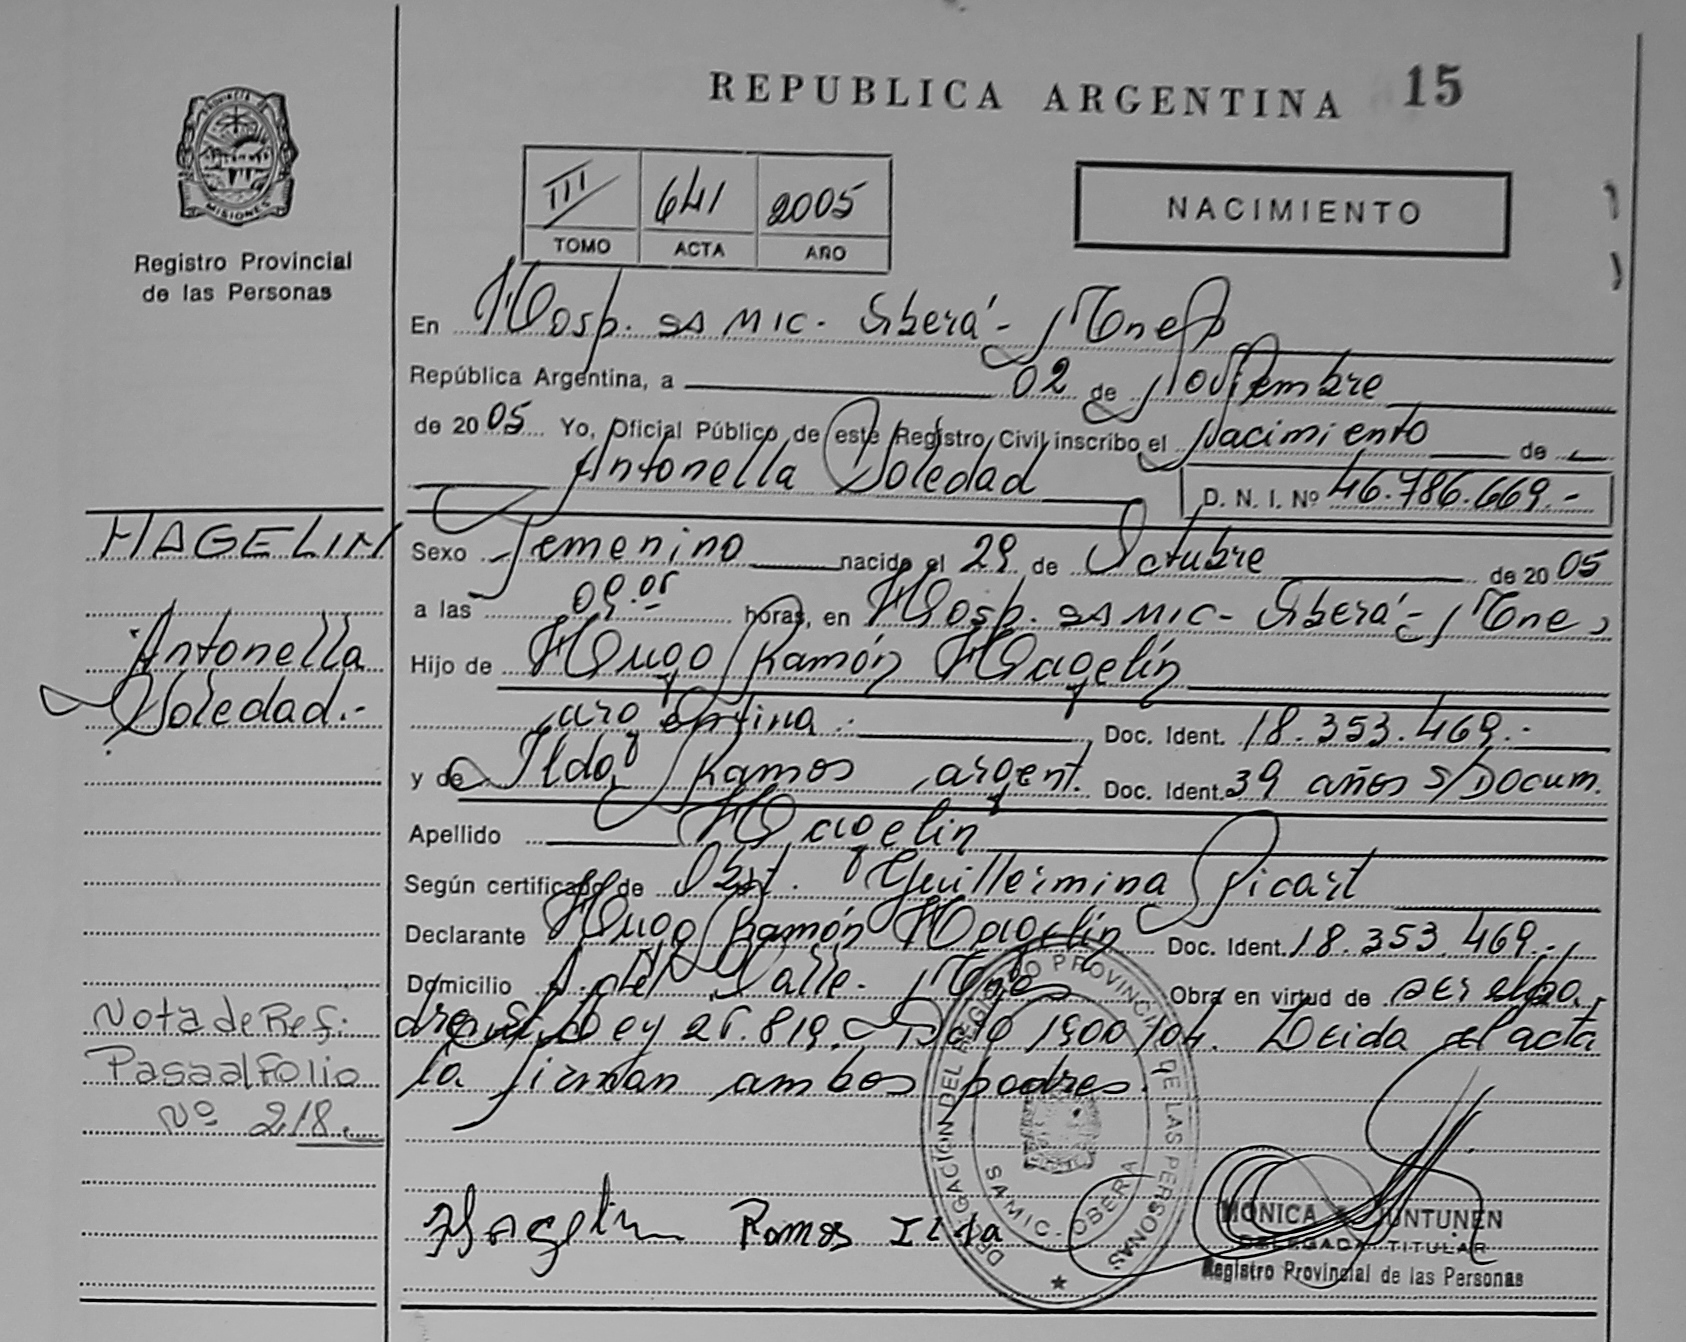 REPUBLICA ARGENTINA 15
PROVINCIA DE
MISIONES
Registro Provincial
de las Personas
III 641 2005
TOMO ACTA AÑO
NACIMIENTO
En Hosp. SAMIC - Oberá - Mnes
República Argentina, a 02 de Noviembre
de 2005 Yo, Oficial Público de este Registro Civil inscribo el Nacimiento de
Antonella Soledad
D. N. I. Nº 46.786.669.-
HAGELIN
Antonella
Soledad.-
Sexo Femenino nacido el 29 de Octubre de 2005
a las 09.05 horas, en Hosp. SAMIC - Oberá - Mnes
Hijo de Hugo Ramón Hagelín
argentina.- Doc. Ident. 18.353.469.-
y de Ilda Ramos, argent. Doc. Ident. 39 años S/Docum.
Apellido Hagelin
Según certificado de Obst. Guillermina Picart
Declarante Hugo Ramón Hagelín Doc. Ident. 18.353.469.-
Domicilio del Valle - Obra en virtud de ser el pa
dre Ley 25.819. 1500/04. Leida el acta
la firman ambos padres.
Nota de Ref:
Pasa al Folio
Nº 218.
Hagelin Ramos Ilda
DELEGACION DEL REGISTRO PROVINCIAL DE LAS PERSONAS
SAMIC - OBERA
MONICA JUNTUNEN
DELEGADA TITULAR
Registro Provincial de las Personas